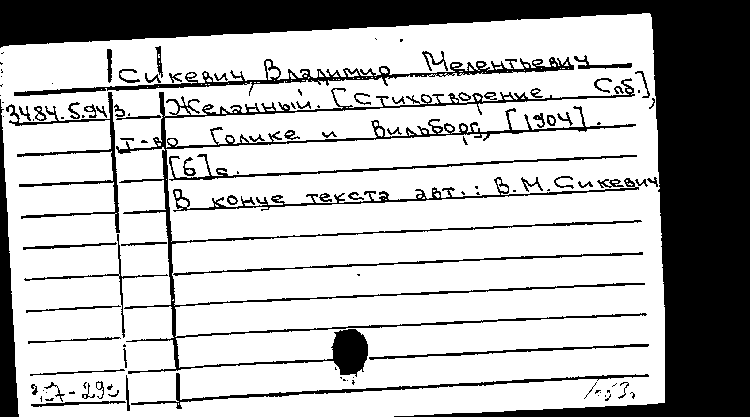 Сикевич, Владимир Мелентьевич
3484.5.94 з. Желанный. [Стихотворение. Спб.],
т-во Голике и Вильборг, [1904].
[6] с.
В конце текста авт.: В.М.Сикевич